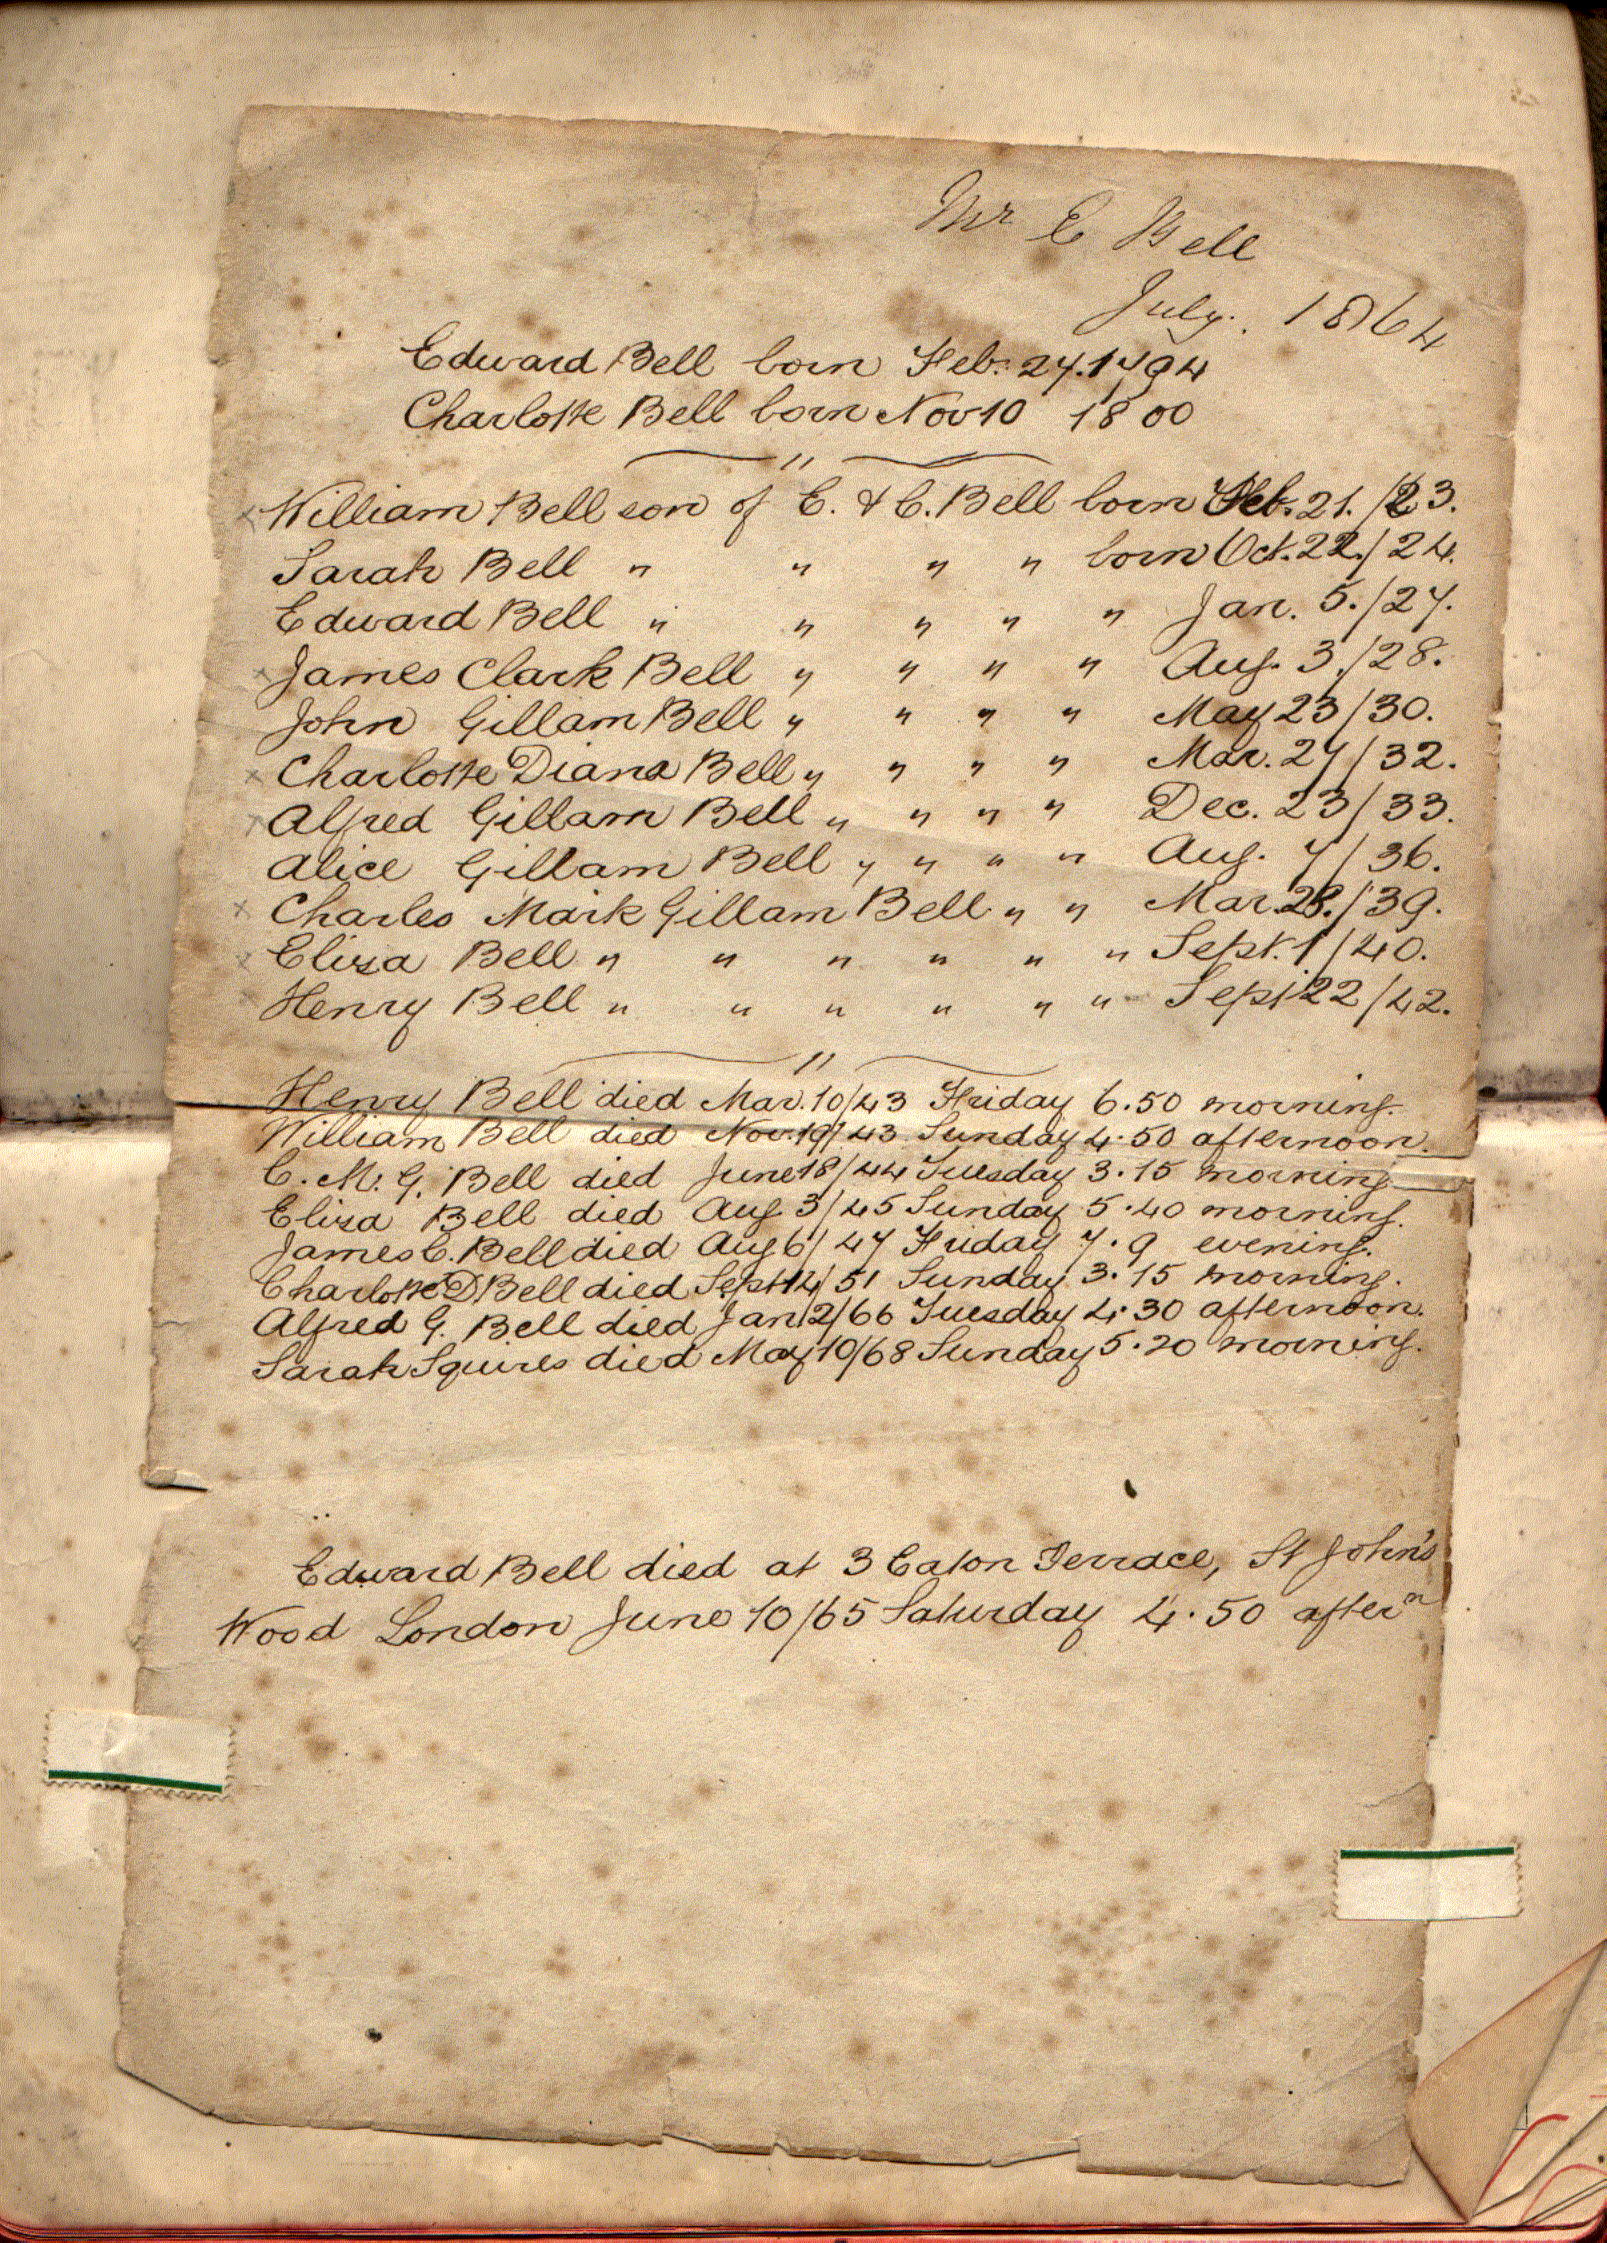 Mr E Bell
July. 1864
Edward Bell born Feb. 27. 1794
Charlotte Bell born Nov 10 1800
"
William Bell son of E. & C. Bell born Feb. 21. /23.
Sarah Bell " " " " born Oct. 22./24.
Edward Bell " " " " " Jan. 5./27.
James Clark Bell " " " " Aug. 3./28.
John Gillam Bell " " " " May 23/30.
Charlotte Diana Bell " " " " Mar. 27/32.
Alfred Gillam Bell " " " " Dec. 23/33.
Alice Gillam Bell " " " " Aug. 7/36.
Charles Mark Gillam Bell " " Mar. 28./39.
Eliza Bell " " " " " " Sept. 1/40.
Henry Bell " " " " " " Sept 22/42.
"
Henry Bell died Mar. 10/43 Friday 6.50 morning.
William Bell died Nov. 19/43 Sunday 4.50 afternoon.
C. M. G. Bell died June 18/44 Tuesday 3.15 morning
Eliza Bell died Aug. 3/45 Sunday 5.40 morning.
James C. Bell died Aug 6/47 Friday 7.9 evening.
Charlotte D Bell died Sept 14/51 Sunday 3.15 morning.
Alfred G. Bell died Jan 2/66 Tuesday 4.30 afternoon.
Sarah Squires died May 10/68 Sunday 5.20 morning.
Edward Bell died at 3 Eaton Terrace, St John's
Wood London June 10/65 Saturday 4.50 aftern